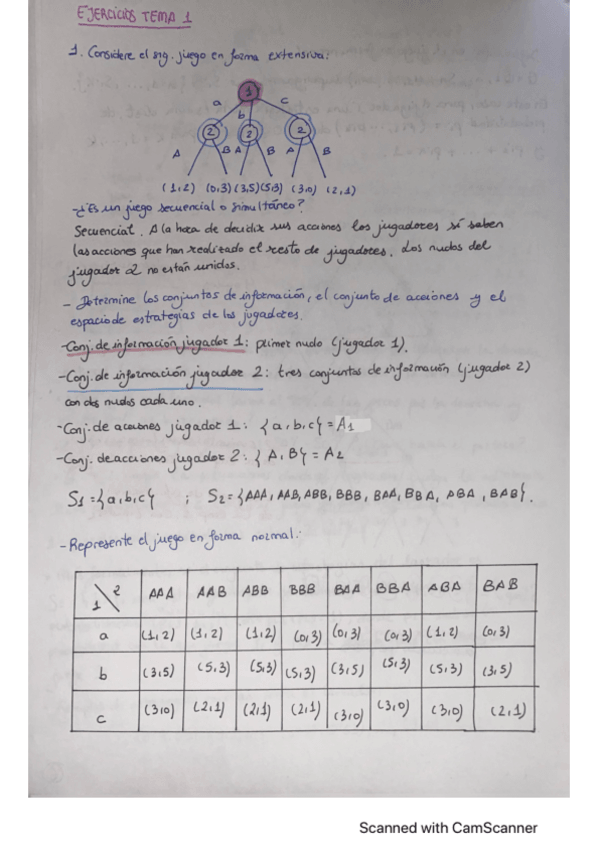 EJERCICIOS TEMA 1
1. Considere el sig. juego en forma extensiva:
1
a b c
2 2 2
A B A B A B
(1,2) (0,3) (3,5) (5,3) (3,0) (2,1)
-¿Es un juego secuencial o simultáneo?
Secuencial. A la hora de decidir sus acciones los jugadores sí saben
las acciones que han realizado el resto de jugadores. Los nudos del
jugador 2 no están unidos.
- Determine los conjuntos de información, el conjunto de acciones y el
espacio de estrategias de los jugadores.
-Conj. de información jugador 1: primer nudo (jugador 1).
-Conj. de información jugador 2: tres conjuntos de información (jugador 2)
con dos nudos cada uno.
-Conj. de acciones jugador 1: {a,b,c} = A1
-Conj. de acciones jugador 2: {A,B} = A2
S1={a,b,c} ; S2={AAA, AAB, ABB, BBB, BAA, BBA, ABA, BAB}.
-Represente el juego en forma normal:
1 \ 2 AAA AAB ABB BBB BAA BBA ABA BAB
a (1,2) (1,2) (1,2) (0,3) (0,3) (0,3) (1,2) (0,3)
b (3,5) (5,3) (5,3) (5,3) (3,5) (5,3) (5,3) (3,5)
c (3,0) (2,1) (2,1) (2,1) (3,0) (3,0) (3,0) (2,1)
Scanned with CamScanner